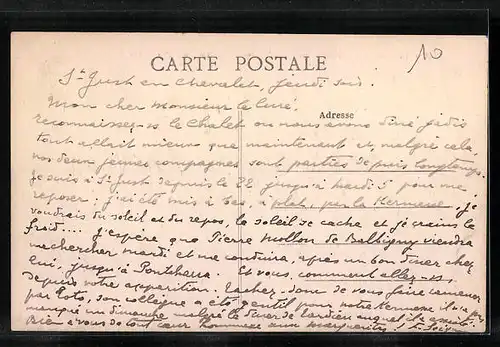 CARTE POSTALE
10
St Just en Chevalet, jeudi soir.
Adresse
Mon cher Monsieur le Curé,
Reconnaissez-vs le Chalet où nous avons dîné jadis
tout allait mieux que maintenant et, malgré cela,
nos deux jeunes compagnes sont parties depuis longtemps.
Je suis à St Just depuis le 22 jusqu'à mardi 5 pour me
reposer; j'ai été mis à bas, à plat, par la Kermesse, je
voudrais du soleil et du repos, le soleil se cache et je crains le
froid.... J'espère que Pierre Mollon de Balbigny viendra
me chercher mardi et me conduira, après un bon dîner chez
lui, jusqu'à Pontcharra. Et vous, comment allez-vs,
depuis votre opération. Tachez donc de vous faire ramener
par Toto, son collègue a été gentil pour notre Kermesse il n'a pas
manqué un dimanche malgré le dîner de
Bien à vous de tout cœur hommage aux